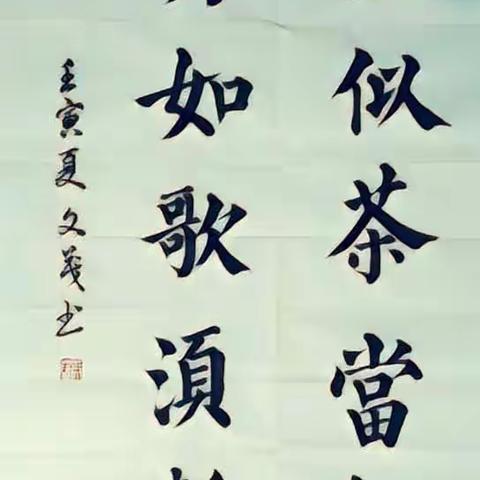 似茶當
如歌須
壬寅夏文義书